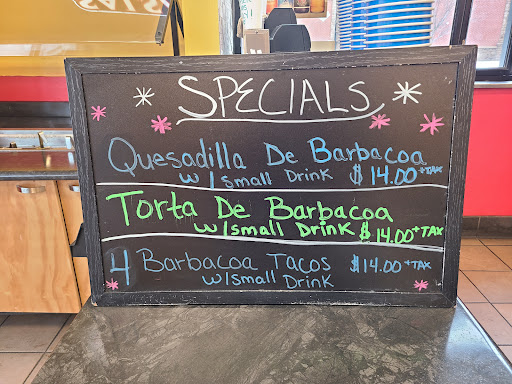 SPECIALS
Quesadilla De Barbacoa
w/small Drink $14.00+TAX
Torta De Barbacoa
w/small Drink $14.00+TAX
4 Barbacoa Tacos $14.00+TAX
w/small Drink